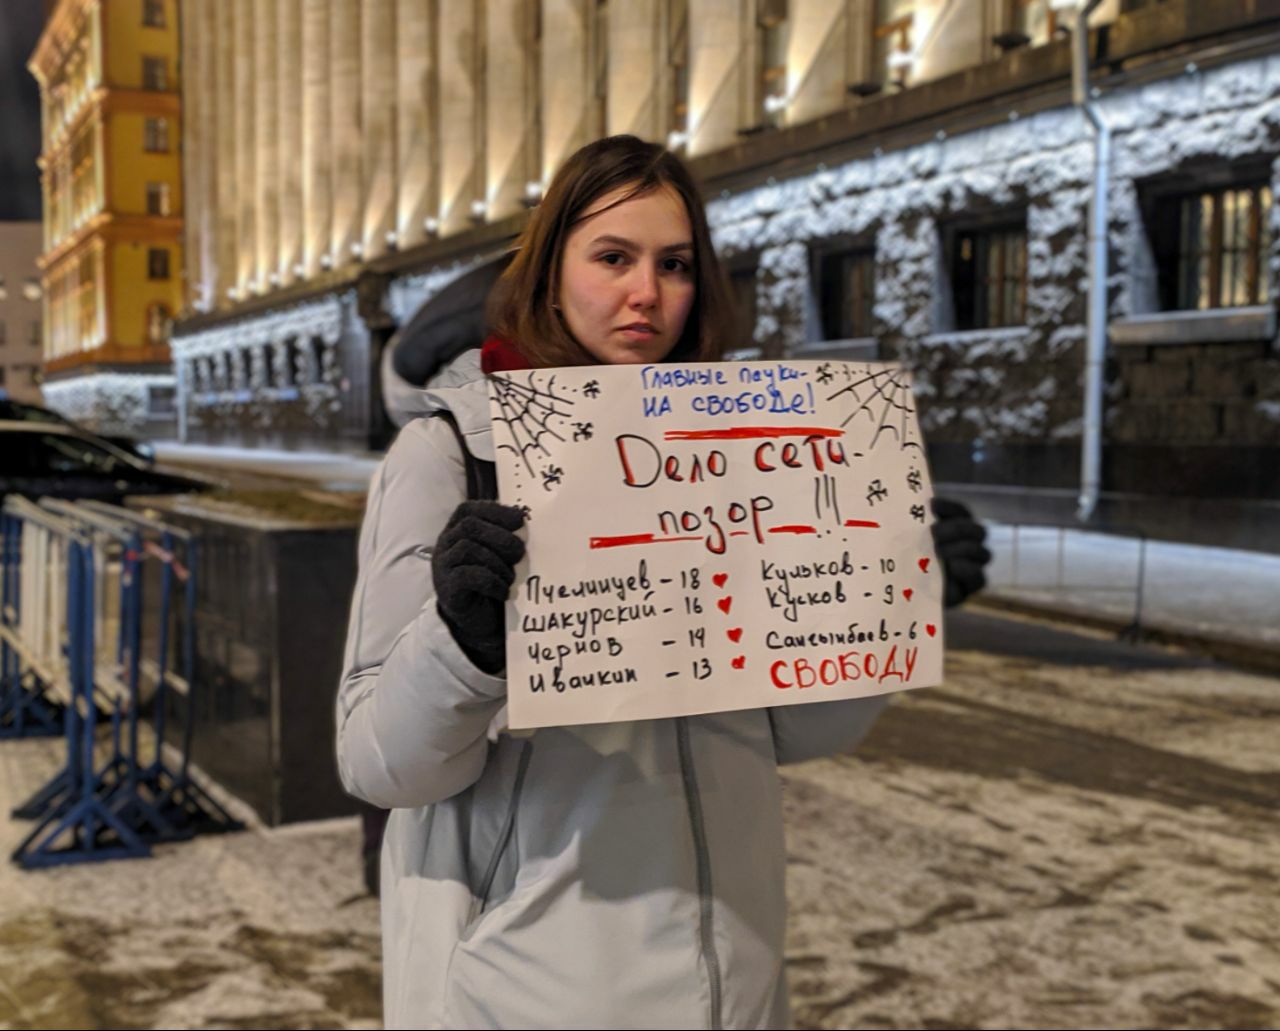 Главные пауки-
НА СВОБОДе!
Дело сети-
позор!!!
Пчелинцев - 18
шакурский - 16
чернов - 14
иванкин - 13
Кульков - 10
Кусков - 9
Сангынбаев - 6
СВОБОДУ